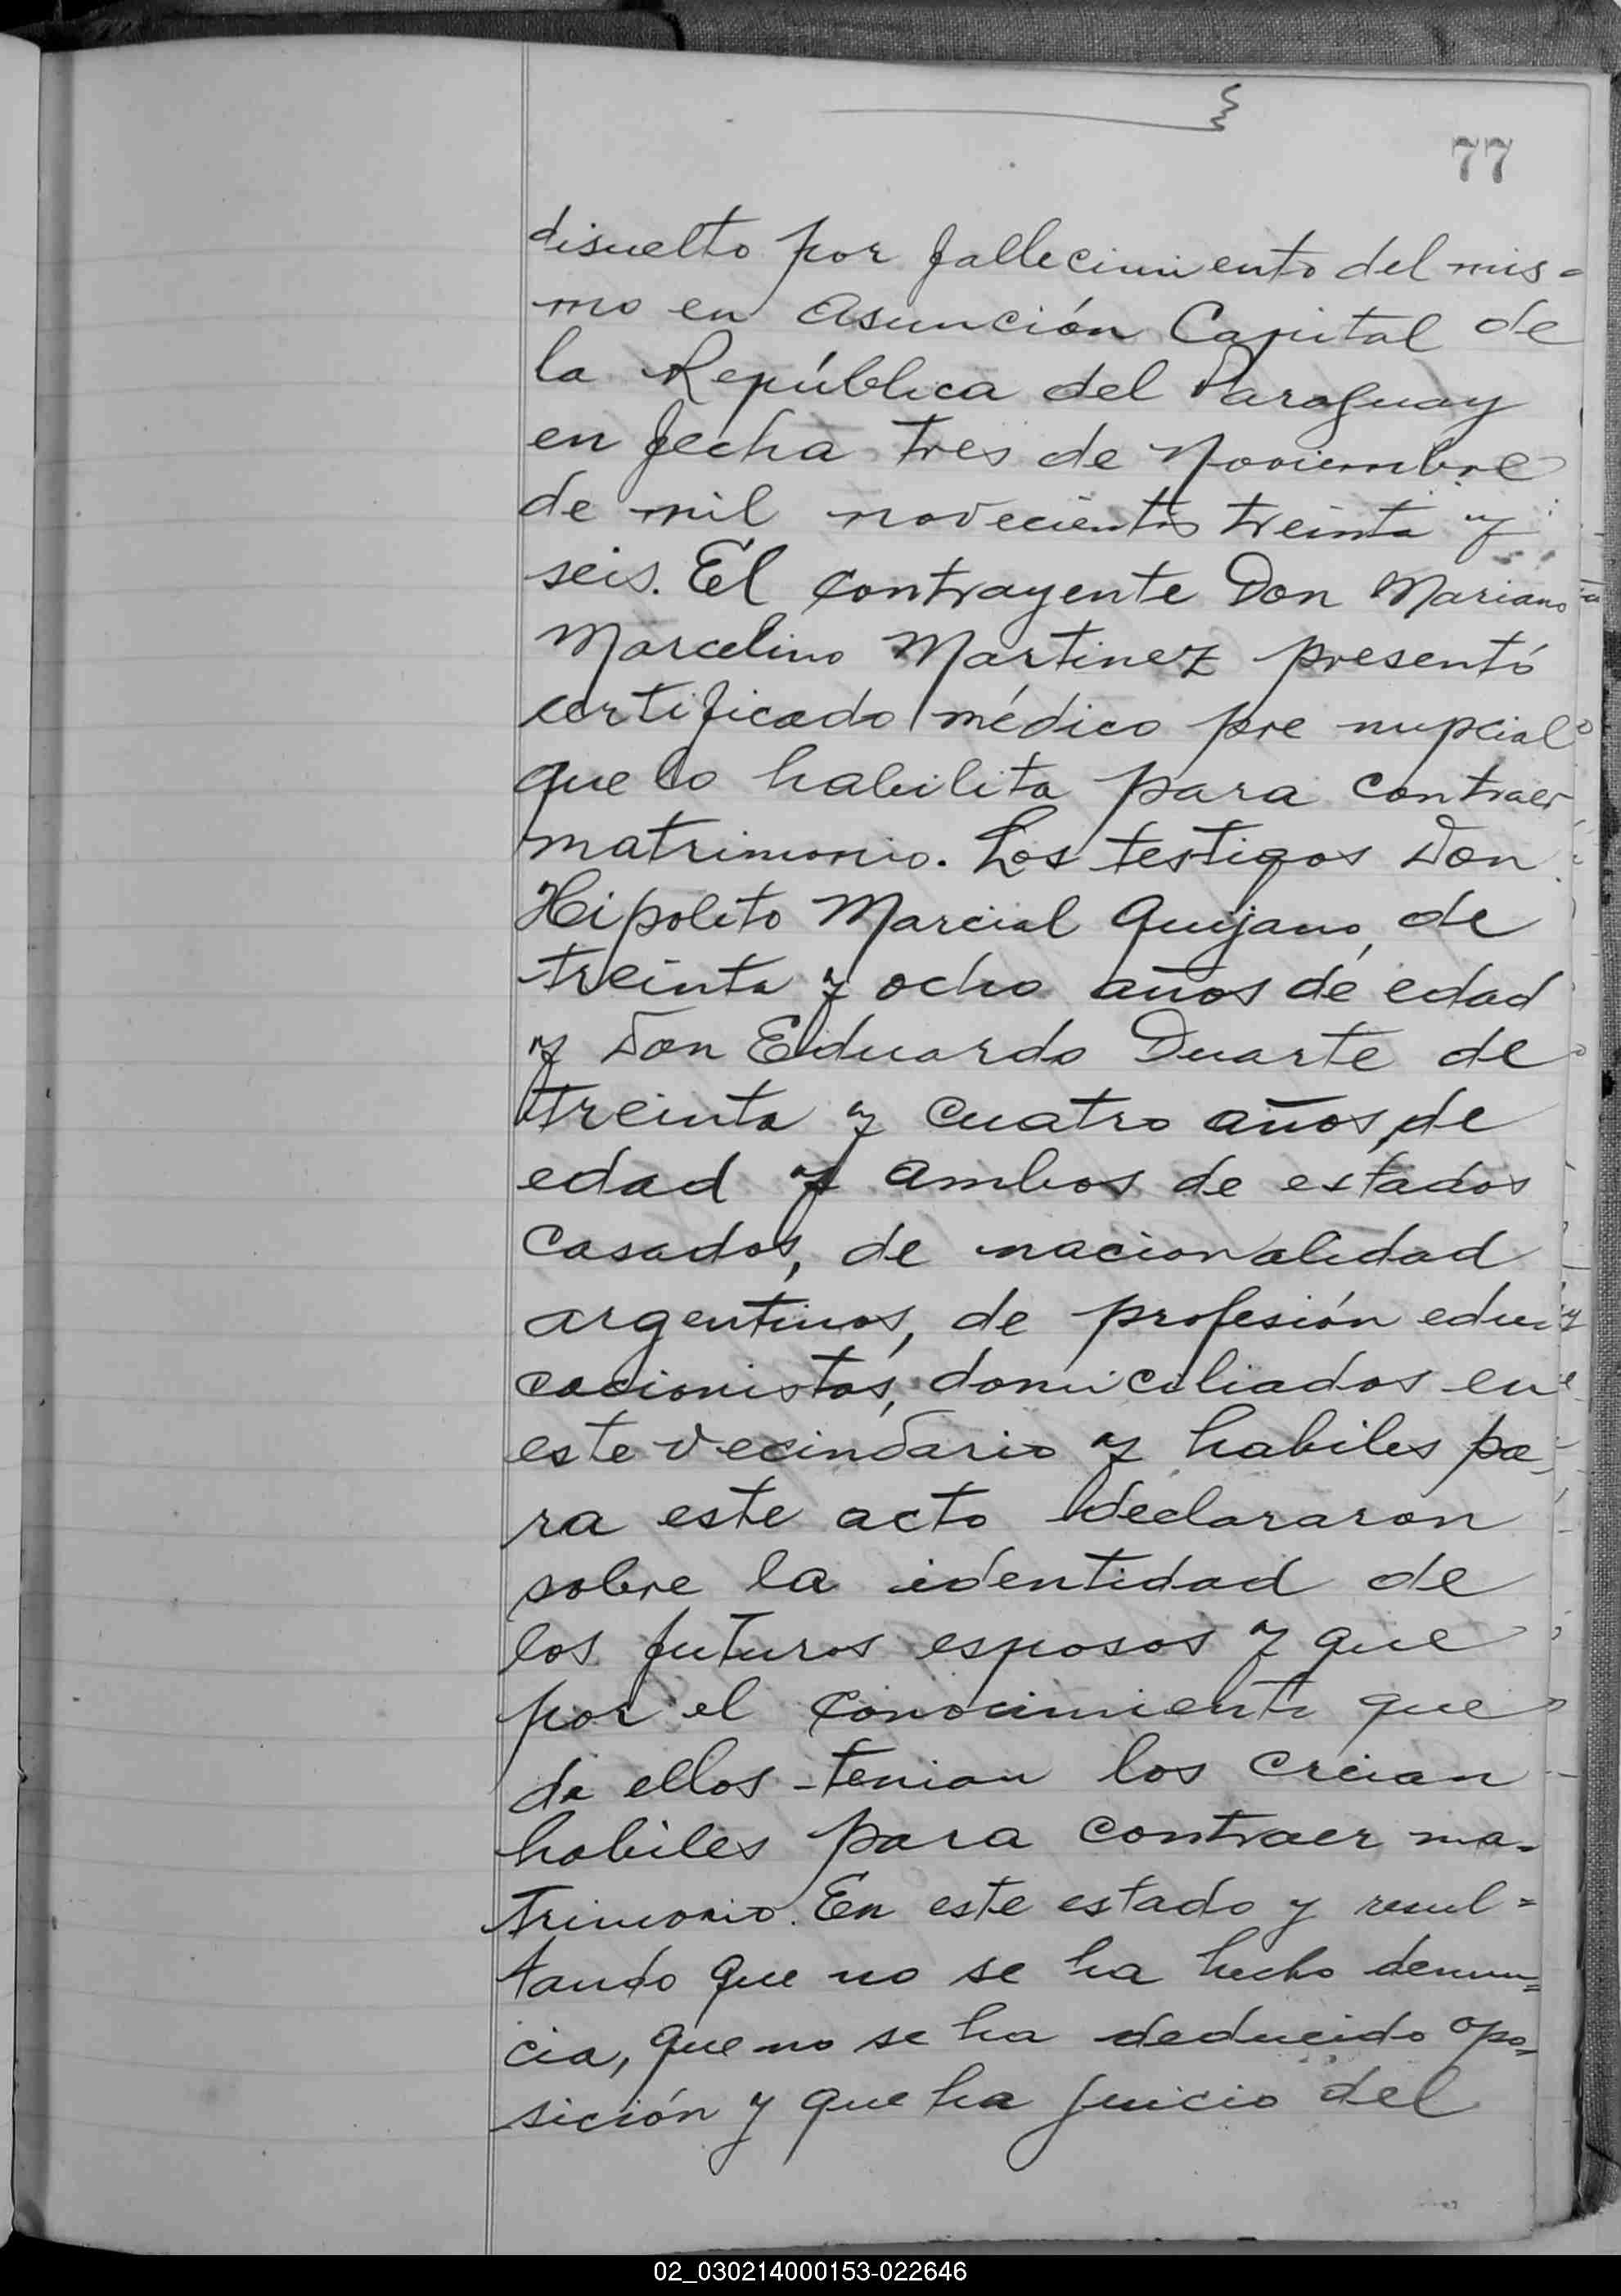 77
disuelto por fallecimiento del mis=
mo en Asunción Capital de
la República del Paraguay
en fecha tres de Noviembre
de mil novecientos treinta y
seis. El contrayente Don Mariano
Marcelino Martinez presentó
certificado médico pre nupcial
que lo habilita para contraer
matrimonio. Los testigos Don
Hipolito Marcial Quijano, de
treinta y ocho años de edad
y Don Eduardo Duarte de
treinta y cuatro años, de
edad y ambos de estados
casados, de nacionalidad
argentinos, de profesión edu-
cacionistas, domiciliados en
este vecindario y habiles pa-
ra este acto declararon
sobre la identidad de
los futuros esposos y que
por el conocimiento que
de ellos tenian los creian
habiles para contraer ma-
trimonio. En este estado y resul=
tando que no se ha hecho denun=
cia, que no se ha deducido opo=
sición y que ha juicio del
02_030214000153-022646